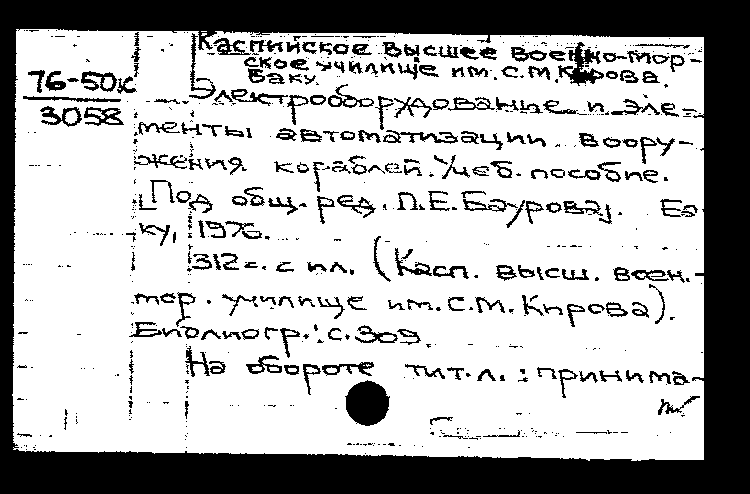 Каспийское высшее военно-мор-
ское училище им. С.М.Кирова.
Баку.
76-50к
3058
Электрооборудование и эле-
менты автоматизации воору-
жения кораблей. Учеб. пособие.
[Под общ. ред. П.Е.Баурова]. Ба-
ку, 1976.
312 с. с ил. (Касп. высш. воен.-
мор. училище им. С.М. Кирова).
Библиогр.: с. 309.
На обороте тит. л.: принима-